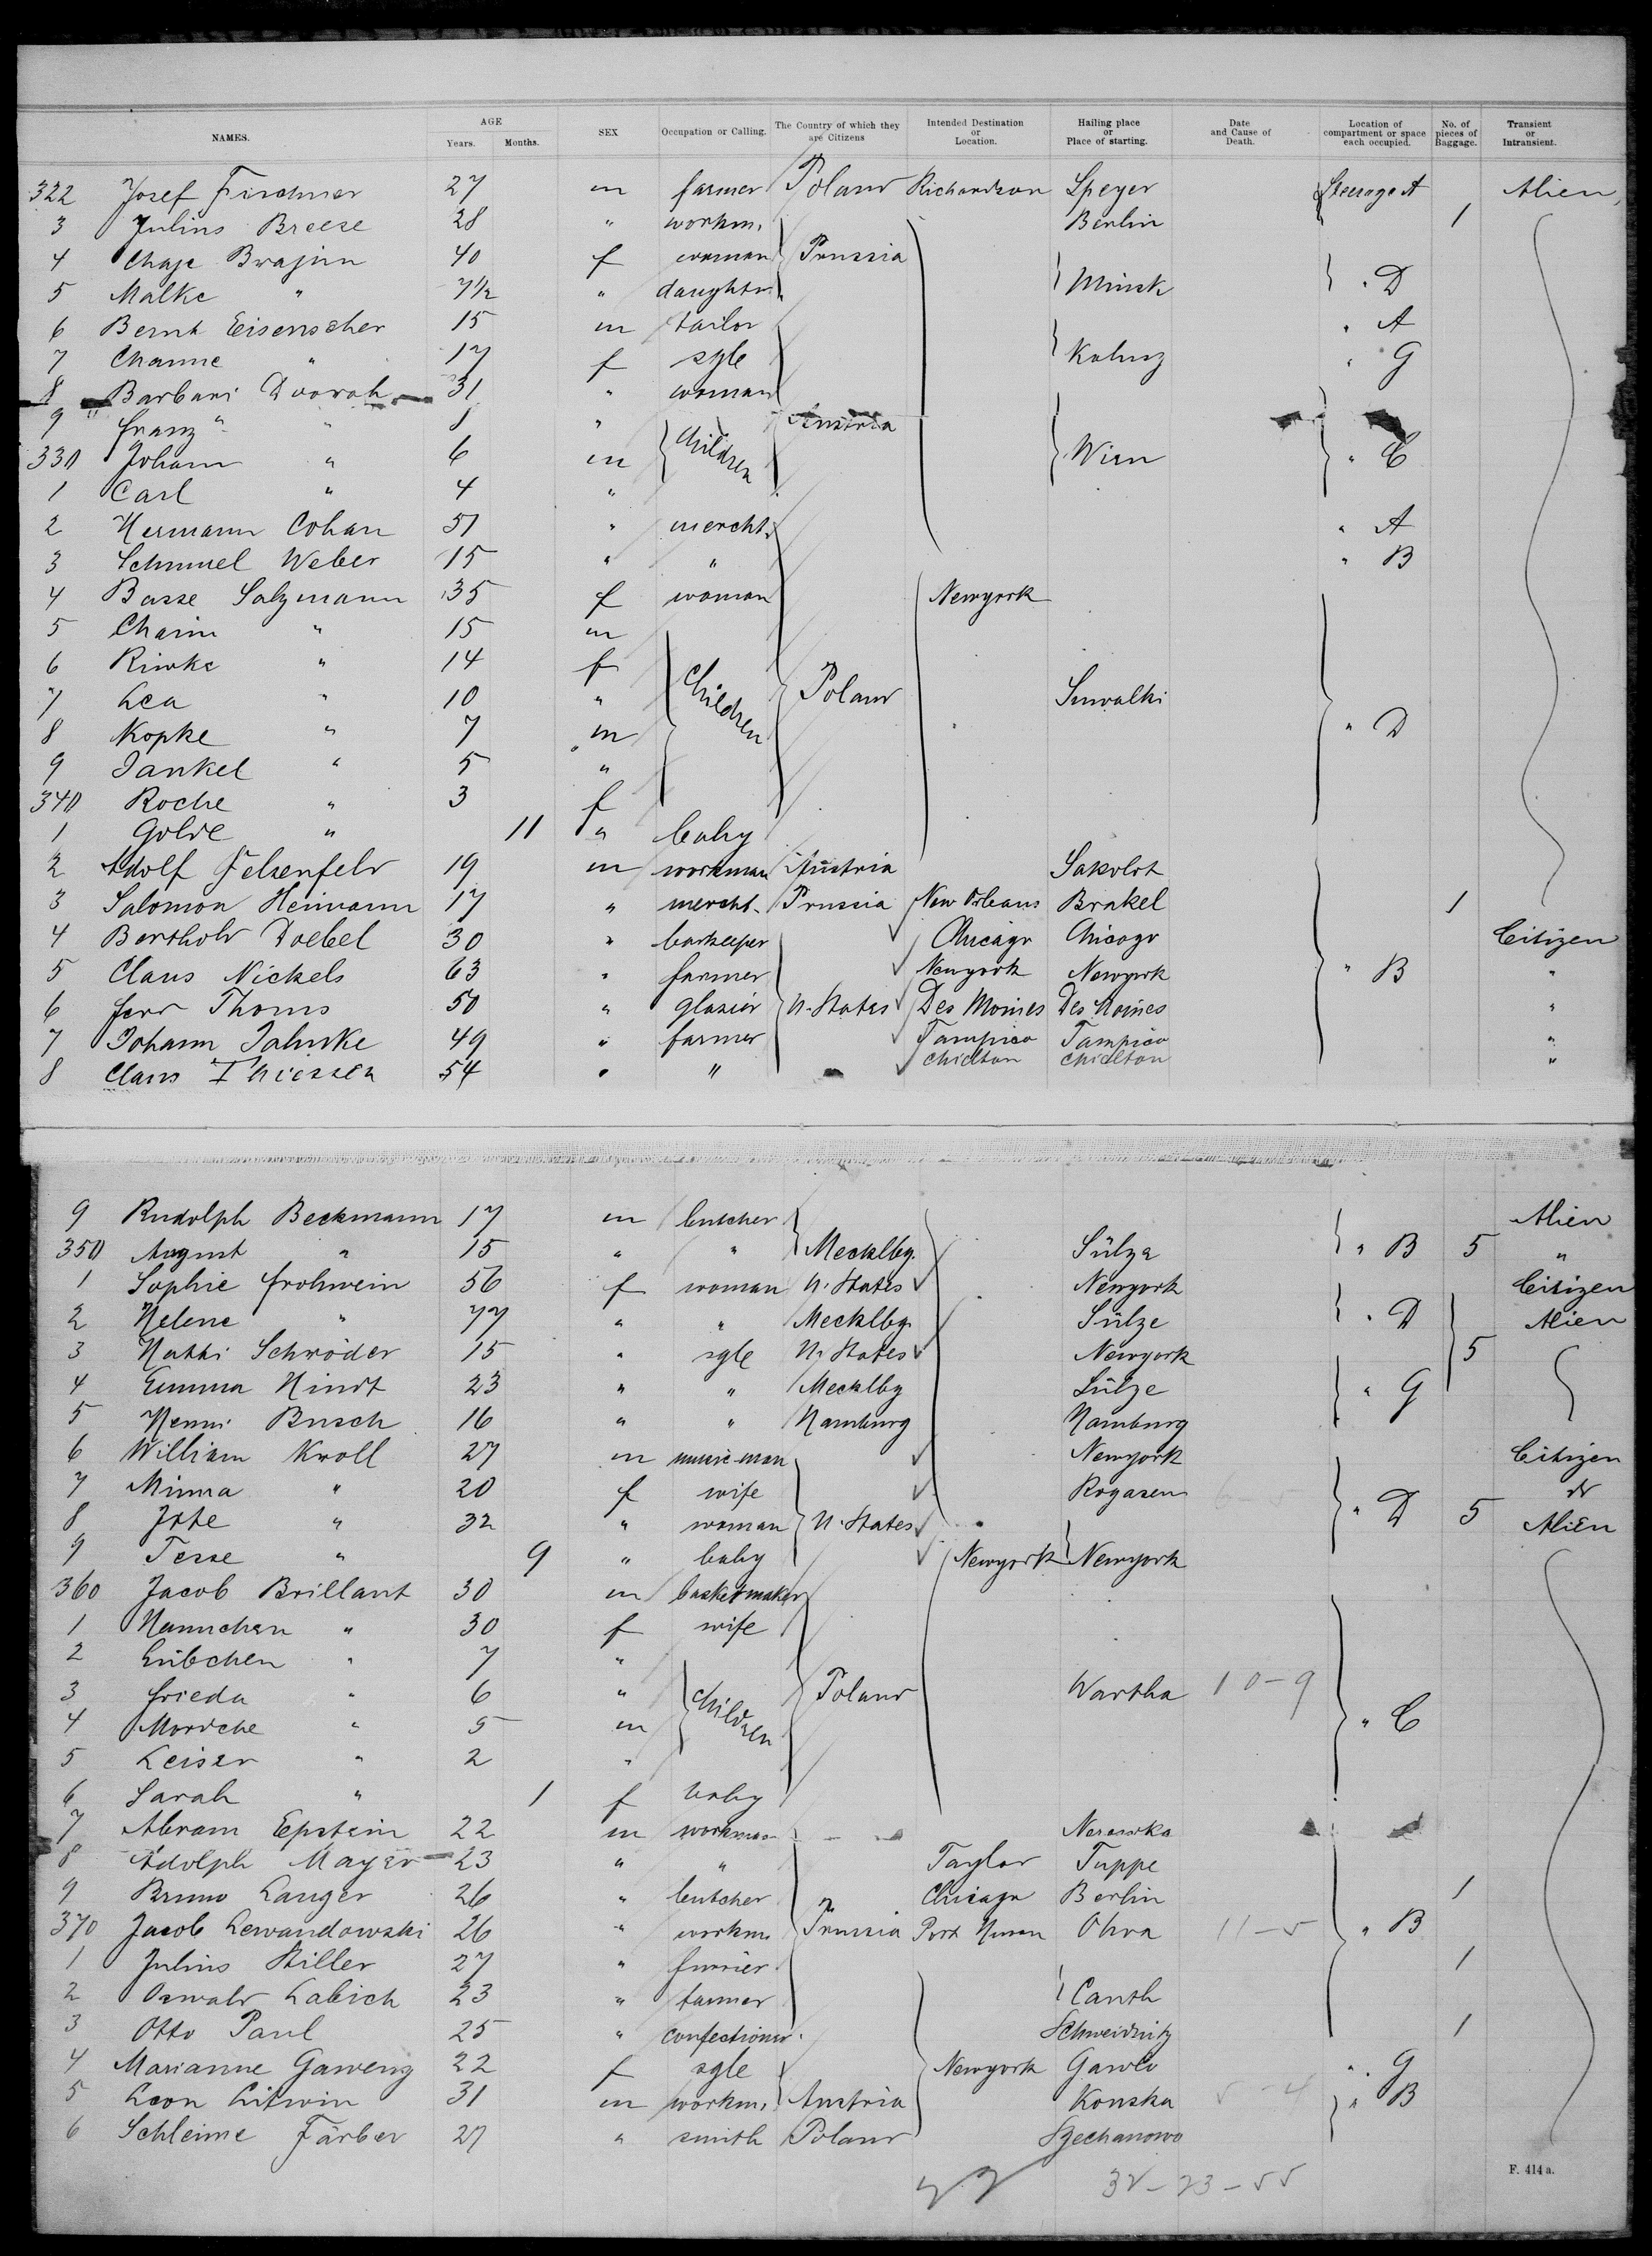 NAMES. AGE Years. Months. SEX Occupation or Calling. The Country of which they are Citizens Intended Destination or Location. Hailing place or Place of starting. Date and Cause of Death. Location of compartment or space each occupied. No. of pieces of Baggage. Transient or Intransient.
322 Josef 27 m farmer Poland Richardson Speyer Steerage A Alien
3 Julius Breese 28 " workm. Berlin 1
4 Chaje Brajim 40 f woman Prussia
5 Malke " 7 1/2 " daughtr. Minsk " D
6 Bernh Eisenscher 15 m tailor " A
7 Channe " 17 f sgle " G
8 Barbari Dworak 31 " woman
9 Franz " " 1 " Austria
330 Johann " 6 m Children Wien " C
1 Carl " 4 "
2 Hermann Cohan 51 " mercht. " A
3 Schmuel Weber 15 " " " B
4 Basse Salzmann 35 f woman Newyork
5 Chaim " 15 m
6 Riwke " 14 f
7 Lea " 10 " Children Poland Suwalki
8 Kopke " 7 m " D
9 Jankel " 5 "
340 Roche " 3 f
1 Golde " 11 " baby
2 Adolf Felsenfeld 19 m workman Austria Sakolot
3 Salomon Heimann 17 " mercht. Prussia New Orleans Brakel 1
4 Berthold Doebel 30 " barkeeper Chicago Chicago Citizen
5 Claus Nickels 63 " farmer Newyork Newyork " B "
6 Thoms 50 " glazier U. States Des Moines Des Moines "
7 Johann Jahnke 49 " farmer Tampico Tampico "
8 Claus Thiessen 54 " " Chielton Chielton "
9 Rudolph Beckmann 17 m butcher Alien
350 August " 15 " " Mecklbg. Sülze " B 5 "
1 Sophie Frohwein 56 f woman U. States Newyork Citizen
2 Helene " 77 " " Mecklbg. Sülze " D Alien
3 Schröder 15 " sgle U. States Newyork 5
4 Emma Hindt 23 " " Mecklbg Sülze " G
5 Henni Busch 16 " " Hamburg Hamburg
6 William Kroll 27 m music-man Newyork Citizen
7 Minna " 20 f wife Rogasen 6-5 do
8 " 32 " woman U. States " D 5 Alien
9 Tesse " 9 " baby Newyork Newyork
360 Jacob Brillant 30 m basketmaker
1 Hannchen " 30 f wife
2 Liibchen " 7 "
3 Frieda " 6 " Children Poland Wartha 10-9
4 Mordche " 5 m " C
5 Leiser " 2 "
6 Sarah " 1 f baby
7 Abram Epstein 22 m workman
8 Adolph Mayer 23 " " Taylor Tuppe
9 Bruno Langer 26 " butcher Chicago Berlin 1
370 Jacob Lewandowski 26 " workm. Prussia Port Huron Oliva 11-5 " B
1 Julius Stiller 27 " furrier 1
2 Oswald Labich 23 " farmer Canth
3 Otto Paul 25 " confectioner. Schweidnitz 1
4 Marianne Gaweng 22 f sgle Newyork " G
5 Leon Litwin 31 m workm. Austria Konska 5-4 " B
6 Schleime Färber 27 " smith Poland Szechanowo
32-23-55
F. 414 a.